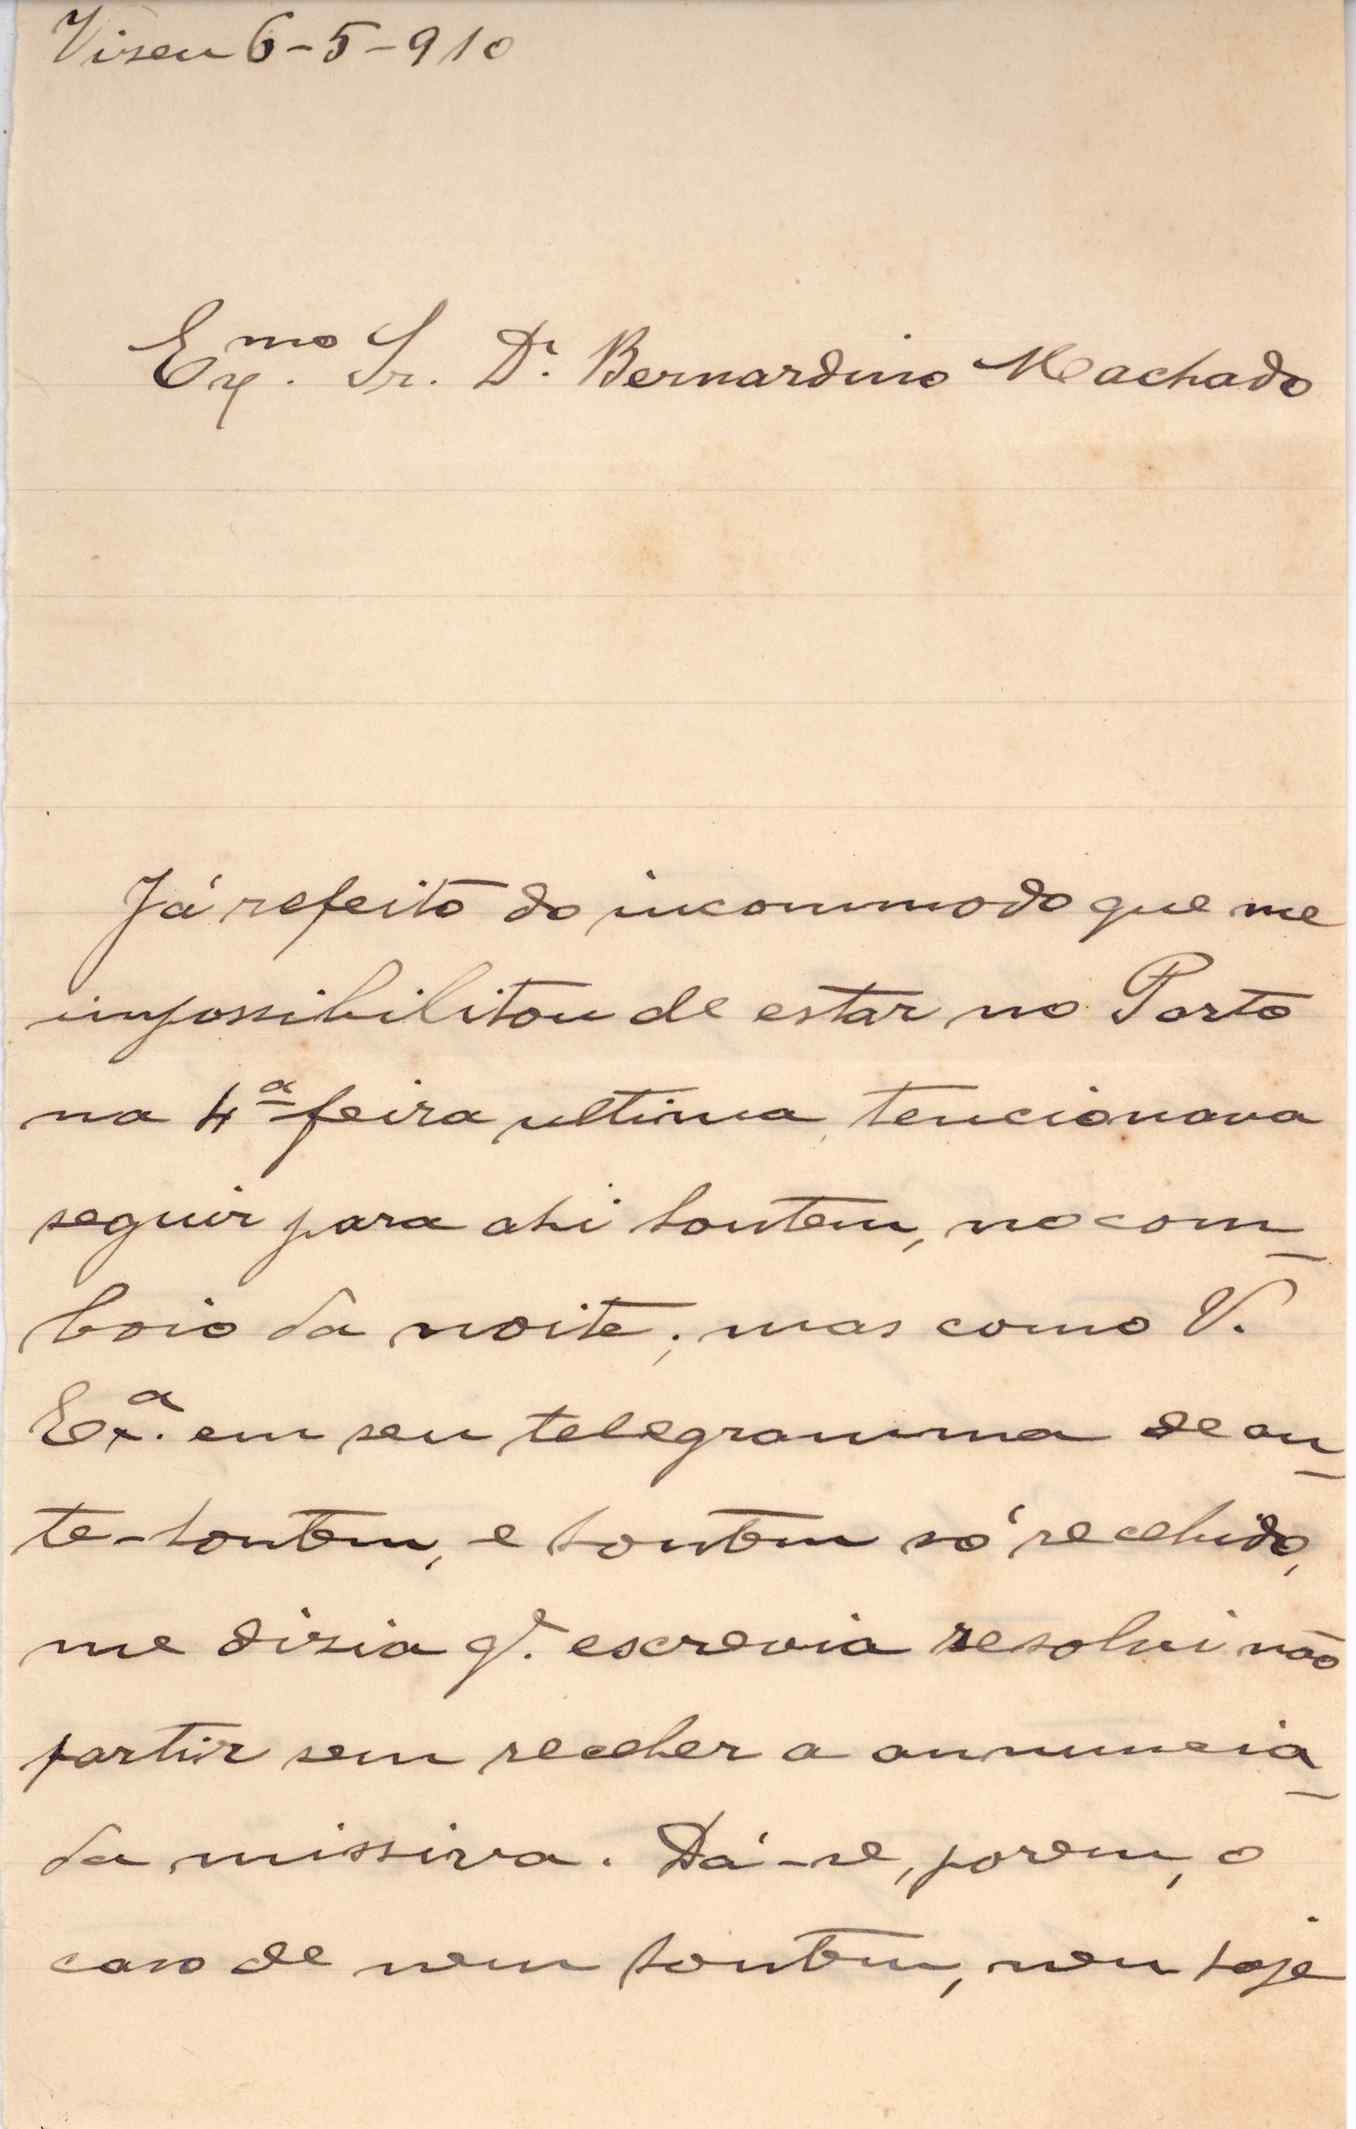 Viseu 6-5-910
Ex.mo Sr. Dr. Bernardino Machado
Já refeito do incommodo que me
impossibilitou de estar no Porto
na 4ª feira ultima, tencionava
seguir para ahi hontem, no com-
boio da noite; mas como V.
Ex.a em seu telegramma de an-
te-hontem, e hontem só recebido,
me disia q. escrevia resolvi não
partir sem receber a annuncia-
da missiva. Dá-se, porem, o
caso de nem hontem, nem hoje